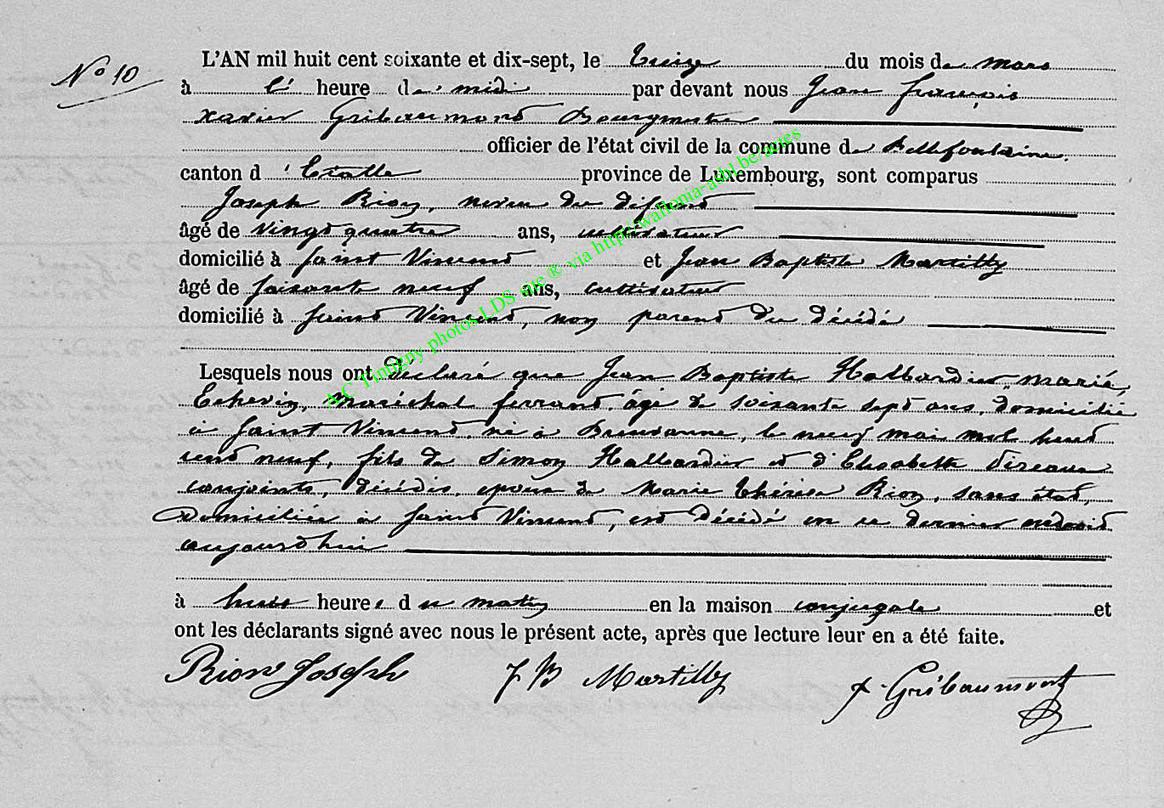 No 10
L'AN mil huit cent soixante et dix-sept, le treize du mois de mars
à l' heure de midi par devant nous Jean François
Xavier Gribaumont Bourgmestre
officier de l'état civil de la commune de Bellefontaine
canton d'Etalle province de Luxembourg, sont comparus
Joseph Rion, neveu du défunt
âgé de vingt quatre ans, cultivateur
domicilié à Saint Vincent et Jean Baptiste Martilly
âgé de soixante neuf ans, cultivateur
domicilié à Saint Vincent, non parent du décédé
Lesquels nous ont déclaré que Jean Baptiste Halbardier, marié,
Echevin, maréchal ferrant, âgé de soixante sept ans, domicilié
à Saint Vincent, né à le neuf mai mil huit
cent neuf, fils de Simon Halbardier et d'Elisabeth
conjoints, décédés, époux de Marie Thérèse Rion, sans état,
domiciliée à Saint Vincent, est décédé en ce dernier endroit
aujourd'hui
à huit heures du matin en la maison conjugale et
ont les déclarants signé avec nous le présent acte, après que lecture leur en a été faite.
Rion Joseph J B Martilly x. Gribaumont
AC Tintigny photos LDS site © via http://wallonia-asbl.be/actes